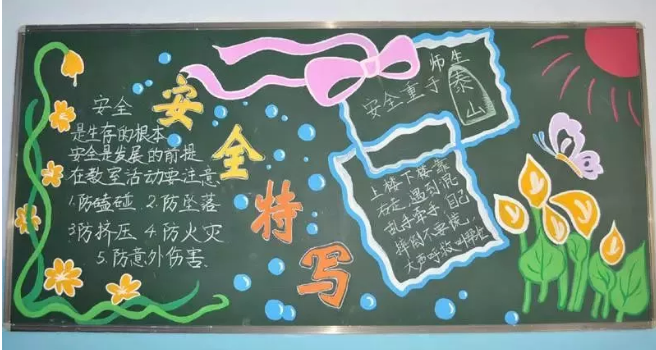 安全
是生存的根本
安全是发展的前提
在教室活动要注意
1.防磕碰 2.防坠落
3防挤压 4.防火灾
5.防意外伤害
安全特写
师生
安全重于
泰山
上楼下楼靠
右走,遇到混
乱手牵手,自己
摔倒不要慌,
大声呼救